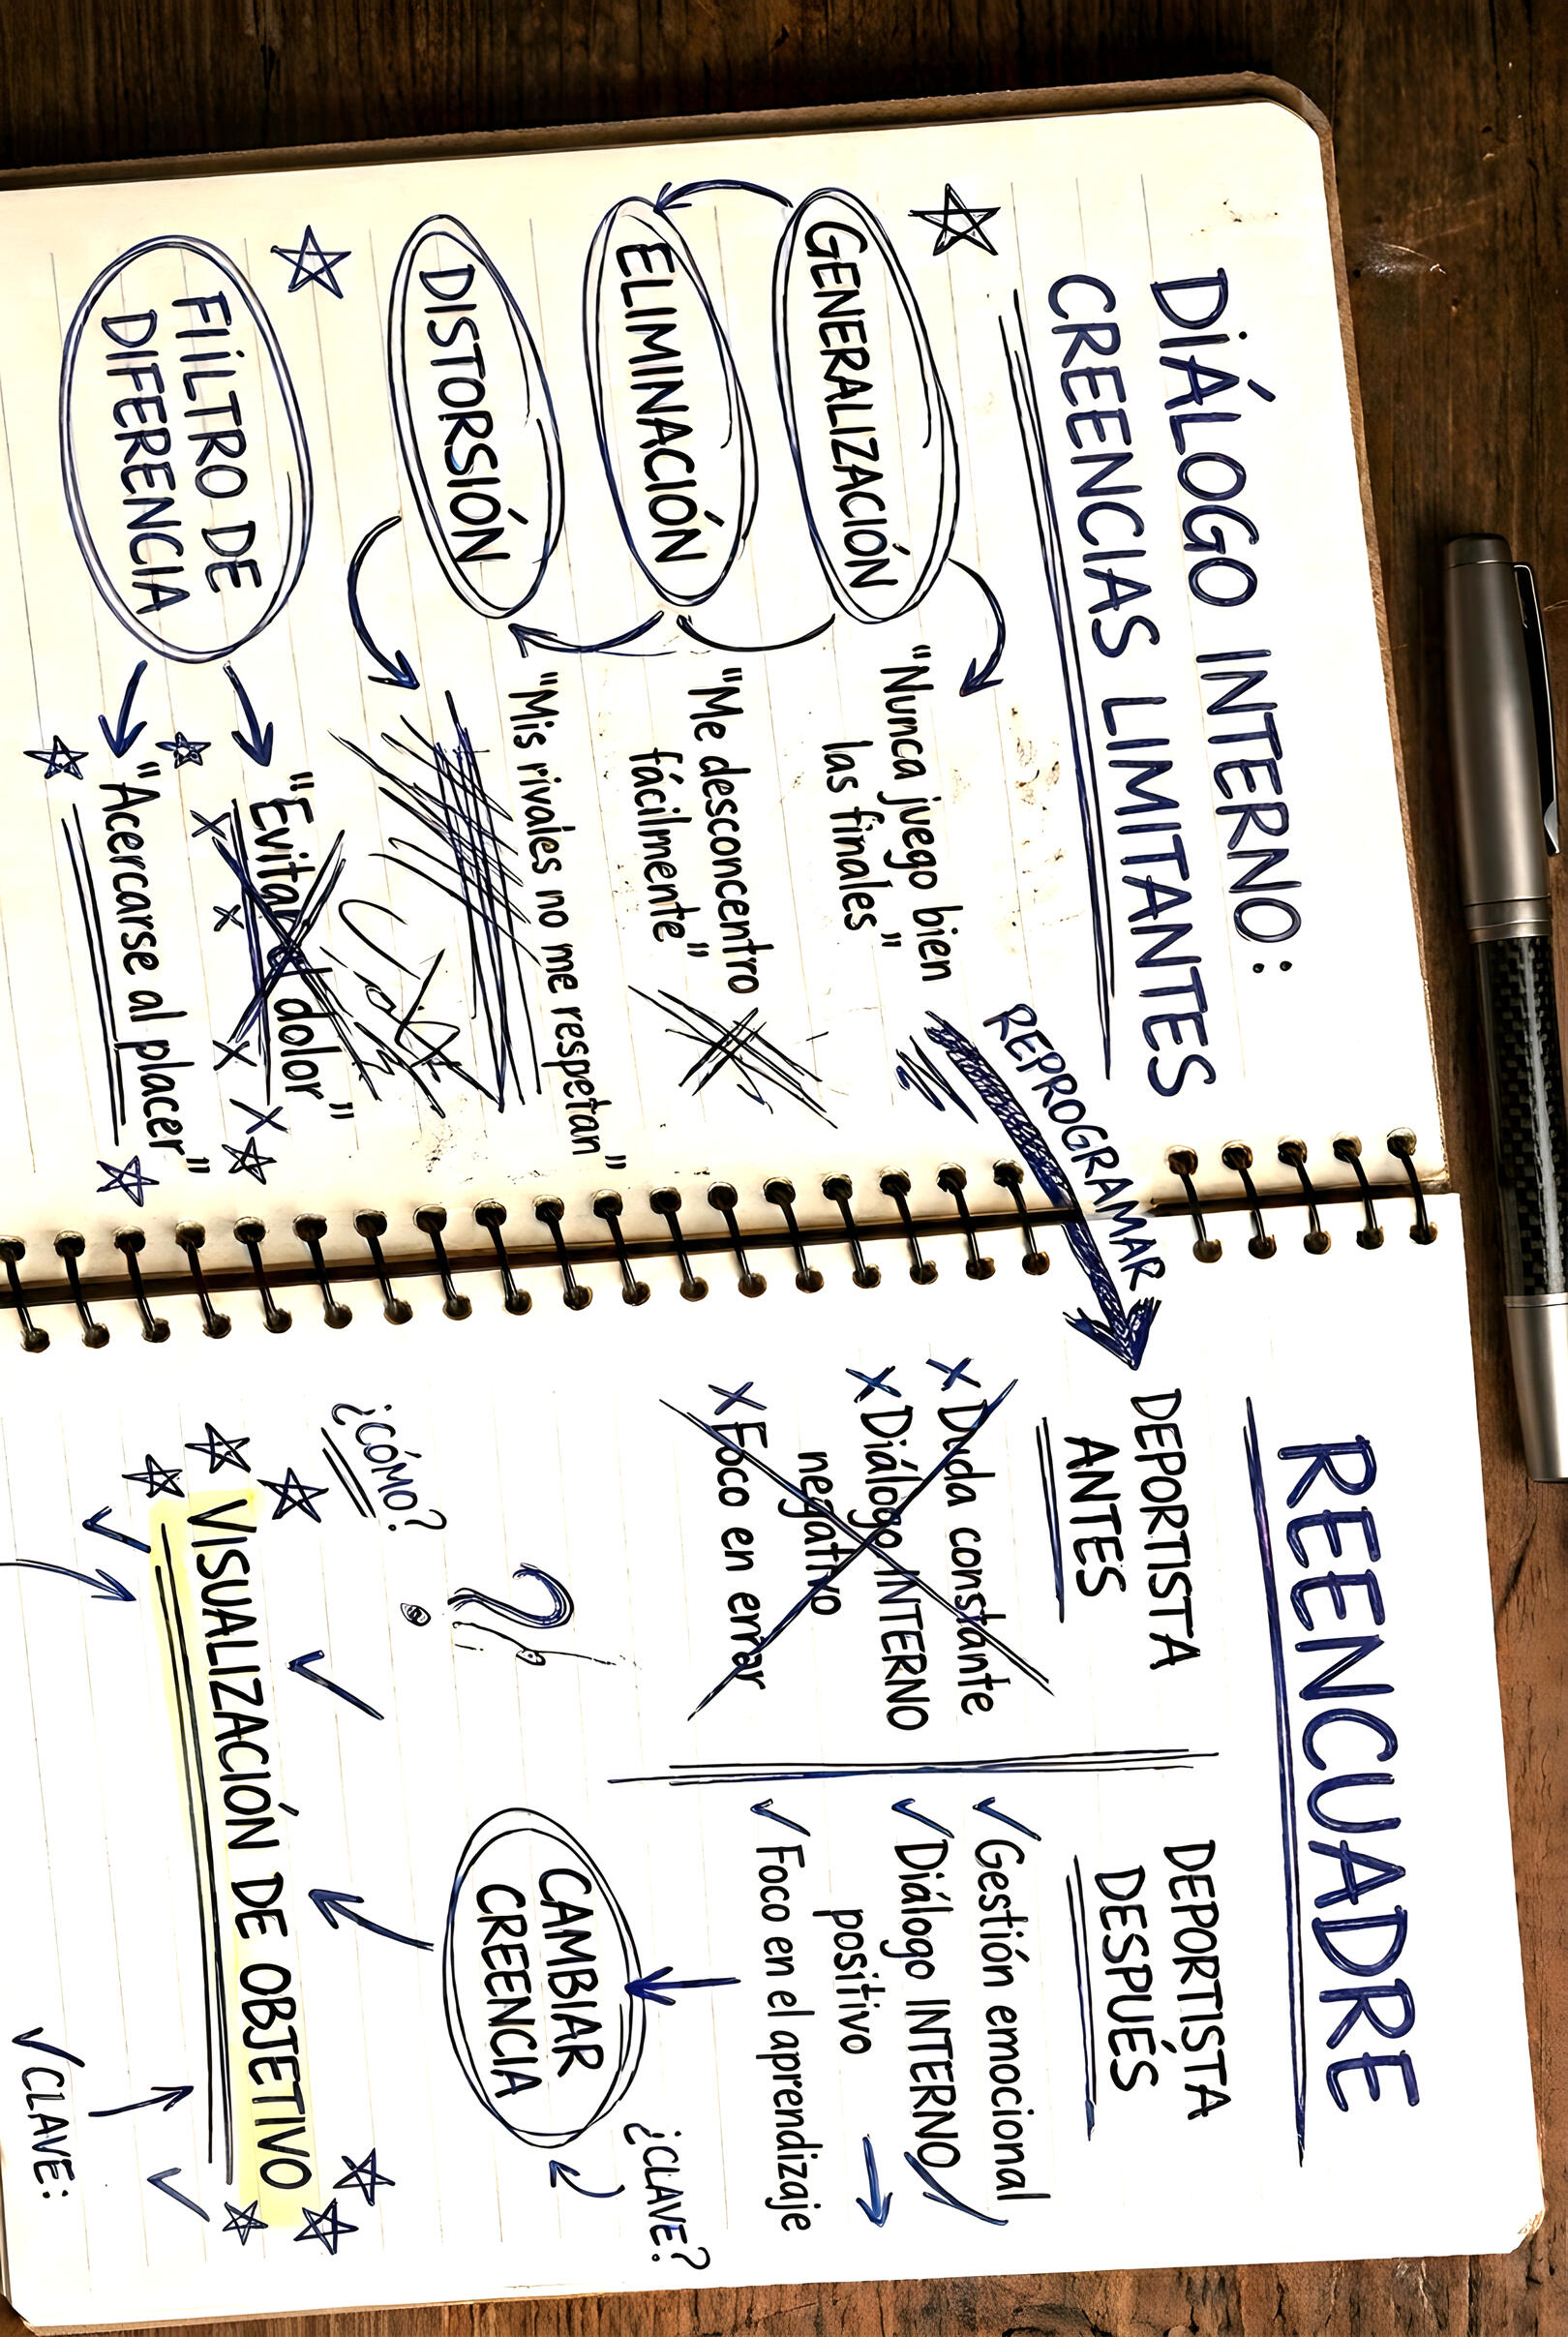 DIÁLOGO INTERNO:
CREENCIAS LIMITANTES
GENERALIZACIÓN
"Nunca juego bien
las finales"
ELIMINACIÓN
"Me desconcentro
fácilmente"
DISTORSIÓN
"Mis rivales no me respetan"
FILTRO DE
DIFERENCIA
"Evitar dolor"
"Acercarse al placer"
REPROGRAMAR
REENCUADRE
DEPORTISTA
ANTES
x Duda constante
x Diálogo INTERNO
negativo
x Foco en error
DEPORTISTA
DESPUÉS
✓ Gestión emocional
✓ Diálogo INTERNO
positivo
✓ Foco en el aprendizaje
¿CLAVE?
CAMBIAR
CREENCIA
¿CÓMO?
VISUALIZACIÓN DE OBJETIVO
✓ CLAVE: